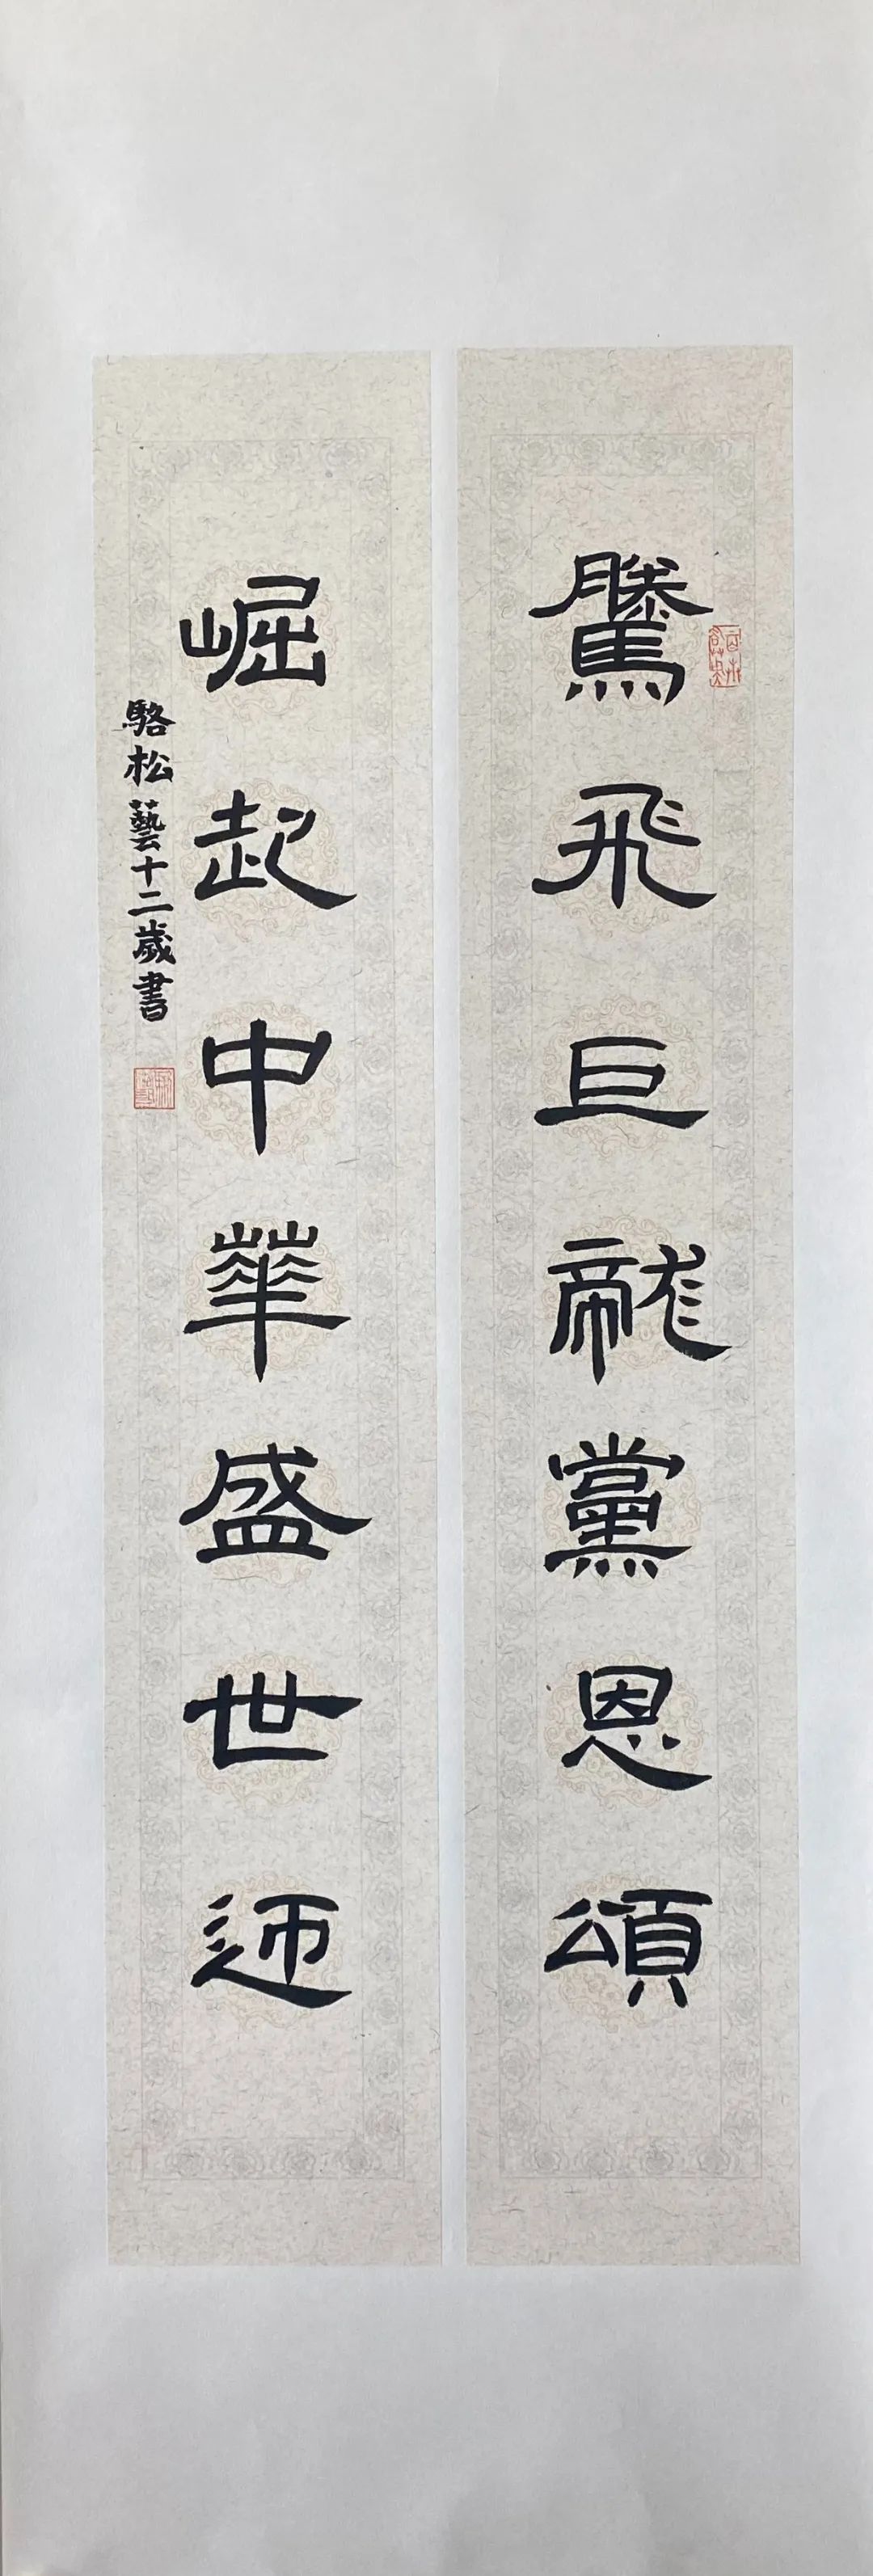 騰飛巨龍黨恩頌
崛起中華盛世迎
駱松藝十二歲書